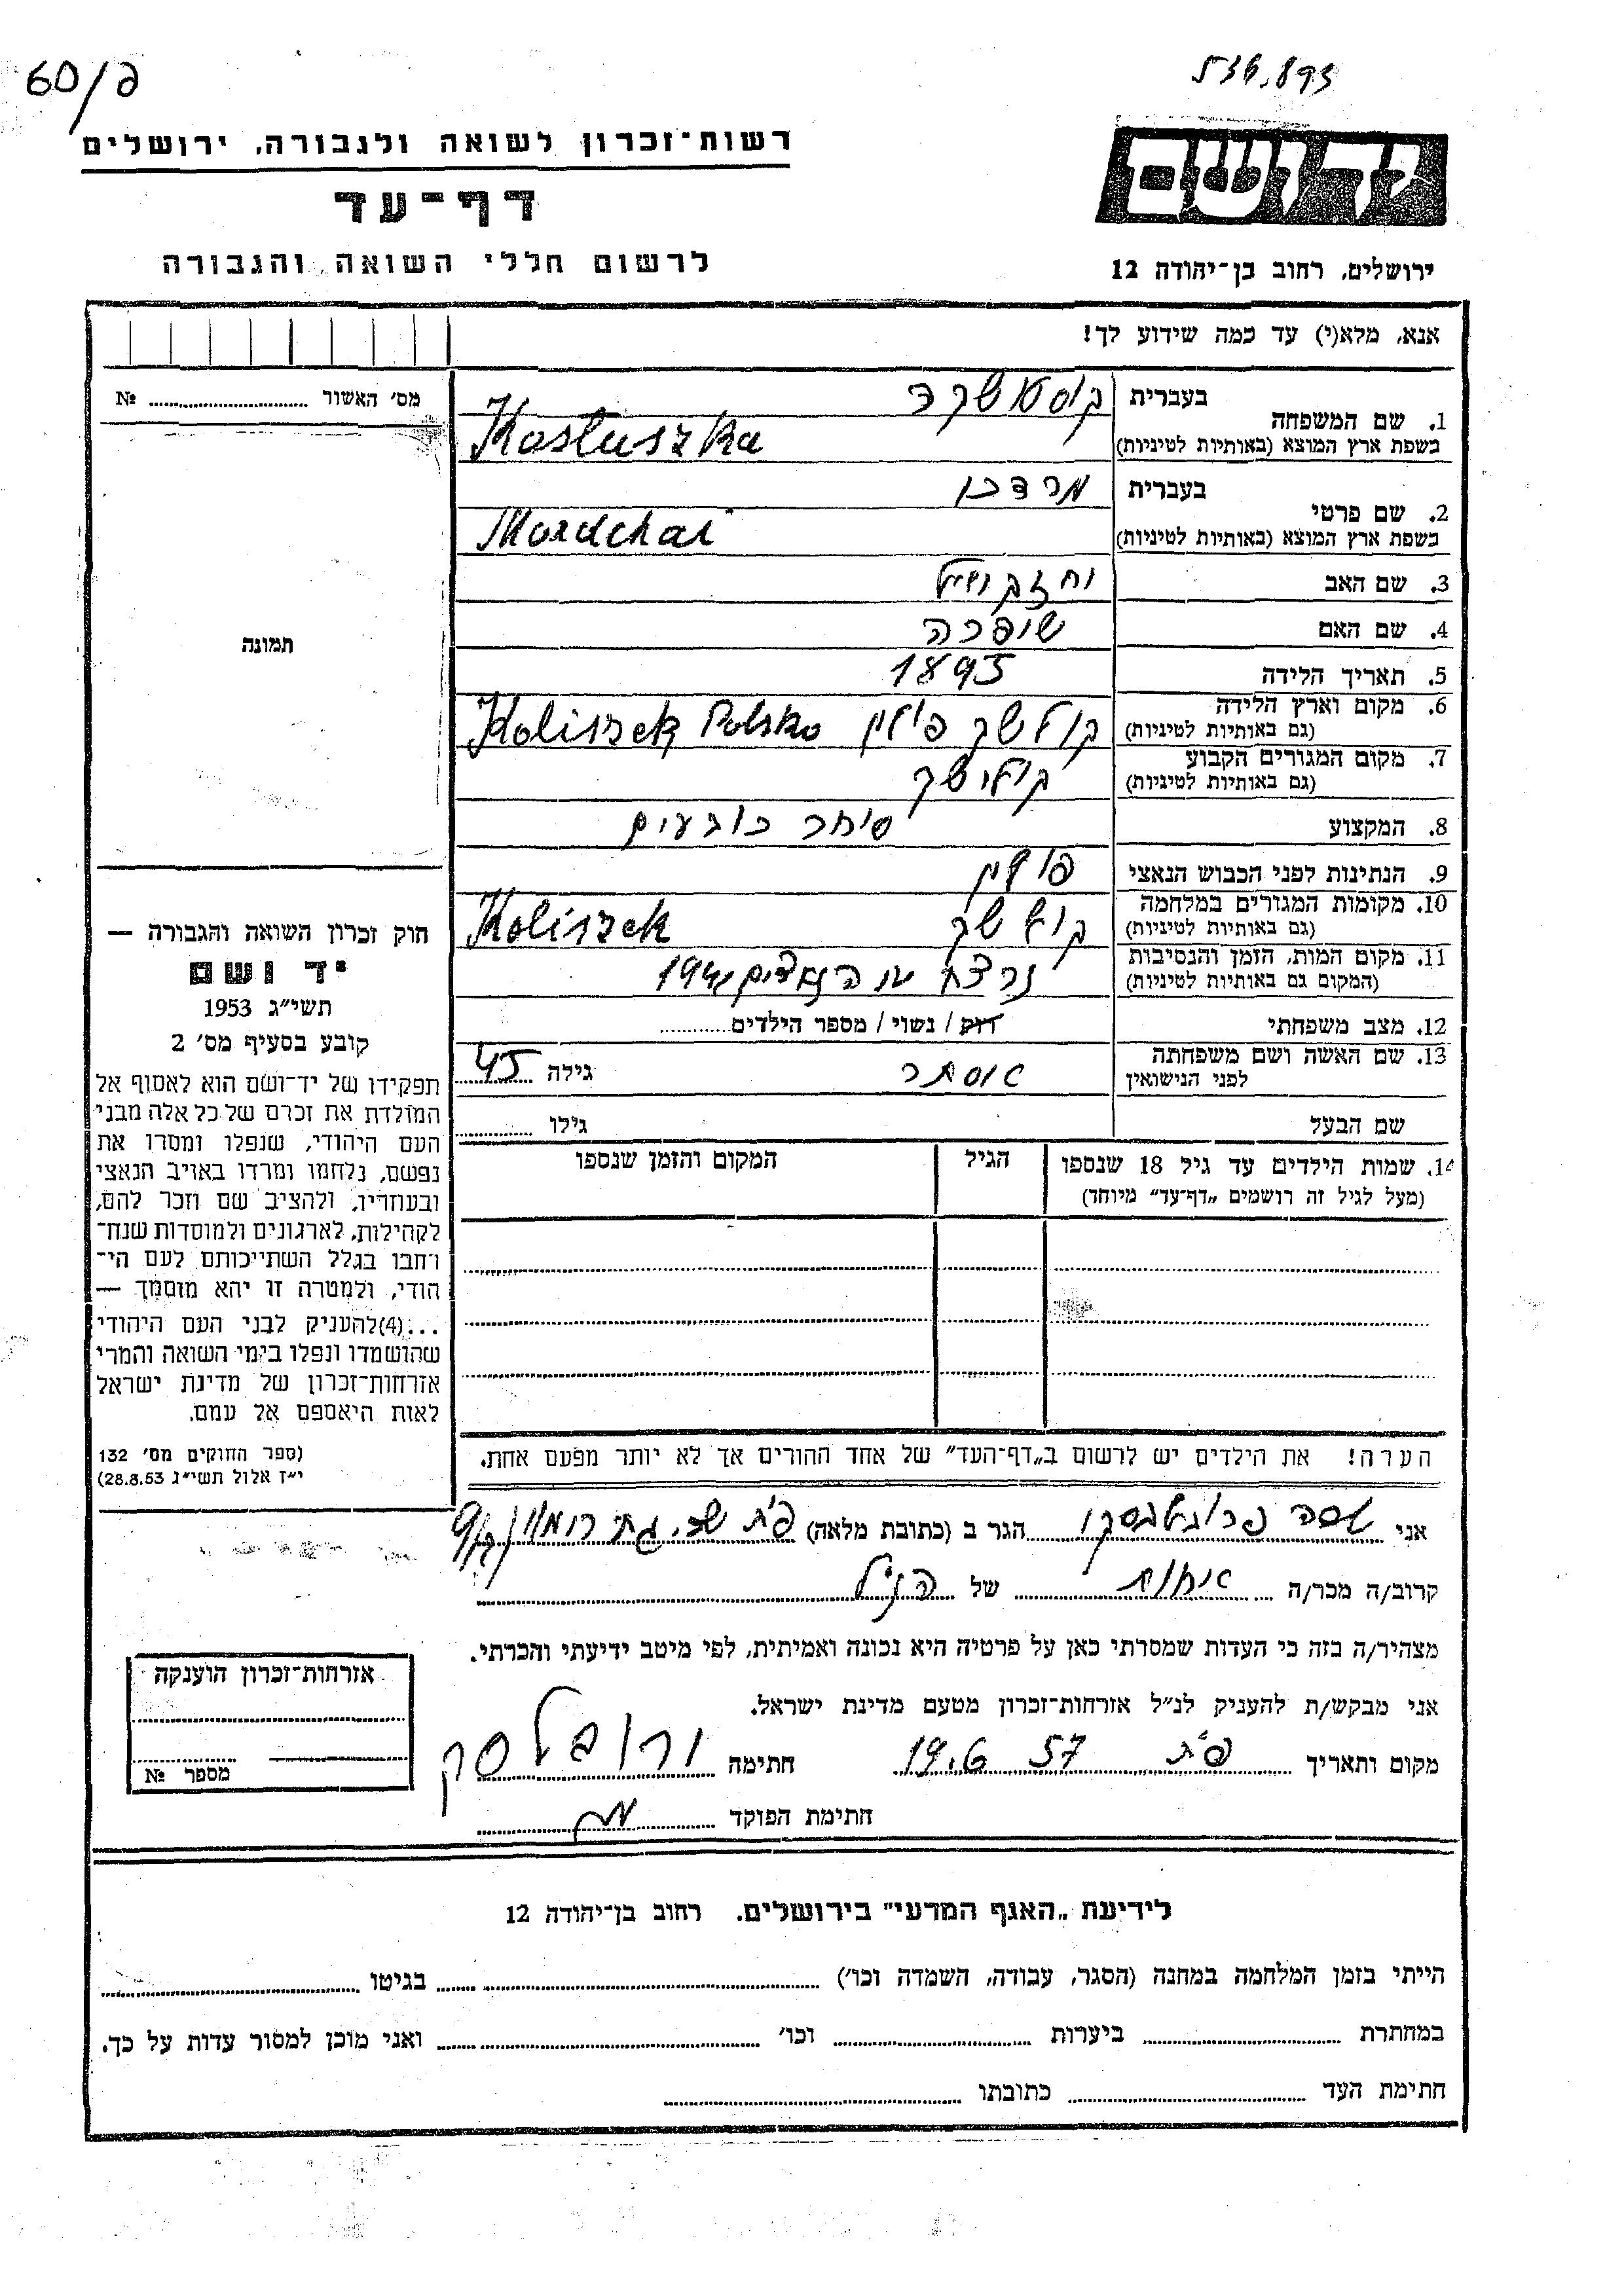 60/פ
רשות־זכרון לשואה ולגבורה, ירושלים
דף־עד
לרשום חללי השואה והגבורה
יד ושם
ירושלים, רחוב בן־יהודה 12
אנא, מלא(י) עד כמה שידוע לך!
מס׳ האשור ........ №
תמונה
1. שם המשפחה
בעברית
בשפת ארץ המוצא (באותיות לטיניות)
Kostuszka
2. שם פרטי
בעברית מרדכי
בשפת ארץ המוצא (באותיות לטיניות)
Mordchai
3. שם האב יחזקאל
4. שם האם שיפרה
5. תאריך הלידה 1895
6. מקום וארץ הלידה
(גם באותיות לטיניות) קולישק פולין Koliszek Polsko
7. מקום המגורים הקבוע
(גם באותיות לטיניות) קולישק
8. המקצוע סוחר כובעים
9. הנתינות לפני הכבוש הנאצי פולין
10. מקומות המגורים במלחמה
(גם באותיות לטיניות) קולישק Koliszek
11. מקום המות, הזמן והנסיבות
(המקום גם באותיות לטיניות) נרצח הנאצים
12. מצב משפחתי רוק / נשוי / מספר הילדים........
13. שם האשה ושם משפחתה
לפני הנישואין אסתר גילה 45
שם הבעל גילו ........
14. שמות הילדים עד גיל 18 שנספו
(מעל לגיל זה רושמים „דף־עד״ מיוחד)
הגיל
המקום והזמן שנספו
חוק זכרון השואה והגבורה —
יד ושם
תשי״ג 1953
קובע בסעיף מס׳ 2
תפקידו של יד־ושם הוא לאסוף אל
המולדת את זכרם של כל אלה מבני
העם היהודי, שנפלו ומסרו את
נפשם, נלחמו ומרדו באויב הנאצי
ובעוזריו, ולהציב שם וזכר להם,
לקהילות, לארגונים ולמוסדות שנח־
רחבו בגלל השתייכותם לעם הי־
הודי, ולמטרה זו יהא מוסמך —
...(4)להעניק לבני העם היהודי
שהושמדו ונפלו בימי השואה והמרי
אזרחות־זכרון של מדינת ישראל
לאות היאספם אל עמם.
(ספר החוקים מס׳ 132
י״ז אלול תשי״ג 28.8.53)
הערה! את הילדים יש לרשום ב„דף־העד״ של אחד ההורים אך לא יותר מפעם אחת.
אני הגר ב (כתובת מלאה) פ״ת גת רימון
קרוב/ה מכר/ה אחות של הנ״ל
מצהיר/ה בזה כי העדות שמסרתי כאן על פרטיה היא נכונה ואמיתית, לפי מיטב ידיעתי והכרתי.
אני מבקש/ת להעניק לנ״ל אזרחות־זכרון מטעם מדינת ישראל.
מקום ותאריך פ״ת 19.6 57 חתימה
חתימת הפוקד
אזרחות־זכרון הוענקה
מספר №
לידיעת „האגף המדעי״ בירושלים. רחוב בן־יהודה 12
הייתי בזמן המלחמה במחנה (הסגר, עבודה, השמדה וכו׳) ........ בגיטו ........
במחתרת ........ ביערות ........ וכו׳ ........ ואני מוכן למסור עדות על כך.
חתימת העד ........ כתובתו ........